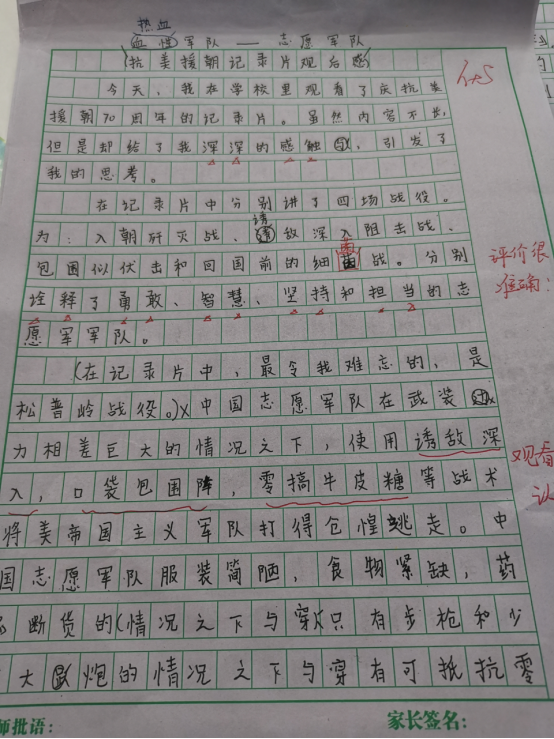 热血
血性军队——志愿军队
(抗美援朝记录片观后感)
今天，我在学校里观看了庆抗美
援朝70周年的记录片。虽然内容不长，
但是却给了我深深的感触，引发了
我的思考。
在记录片中分别讲了四场战役。
为：入朝歼灭战、诱敌深入阻击战、
包围似伏击和回国前的细菌战。分别
诠释了勇敢、智慧、坚持和担当的志
愿军军队。
评价很
准确！
(在记录片中，最令我难忘的，是
松普岭战役。)中国志愿军队在武装
力相差巨大的情况之下，使用诱敌深
入，口袋包围阵，零搞牛皮糖等战术
观看
认
将美帝国主义军队打得仓惶逃走。中
国志愿军队服装简陋，食物紧缺，药
断货的(情况之下与穿)只有步枪和少
大炮的情况之下与穿有可抵抗零
师批语：
家长签名：